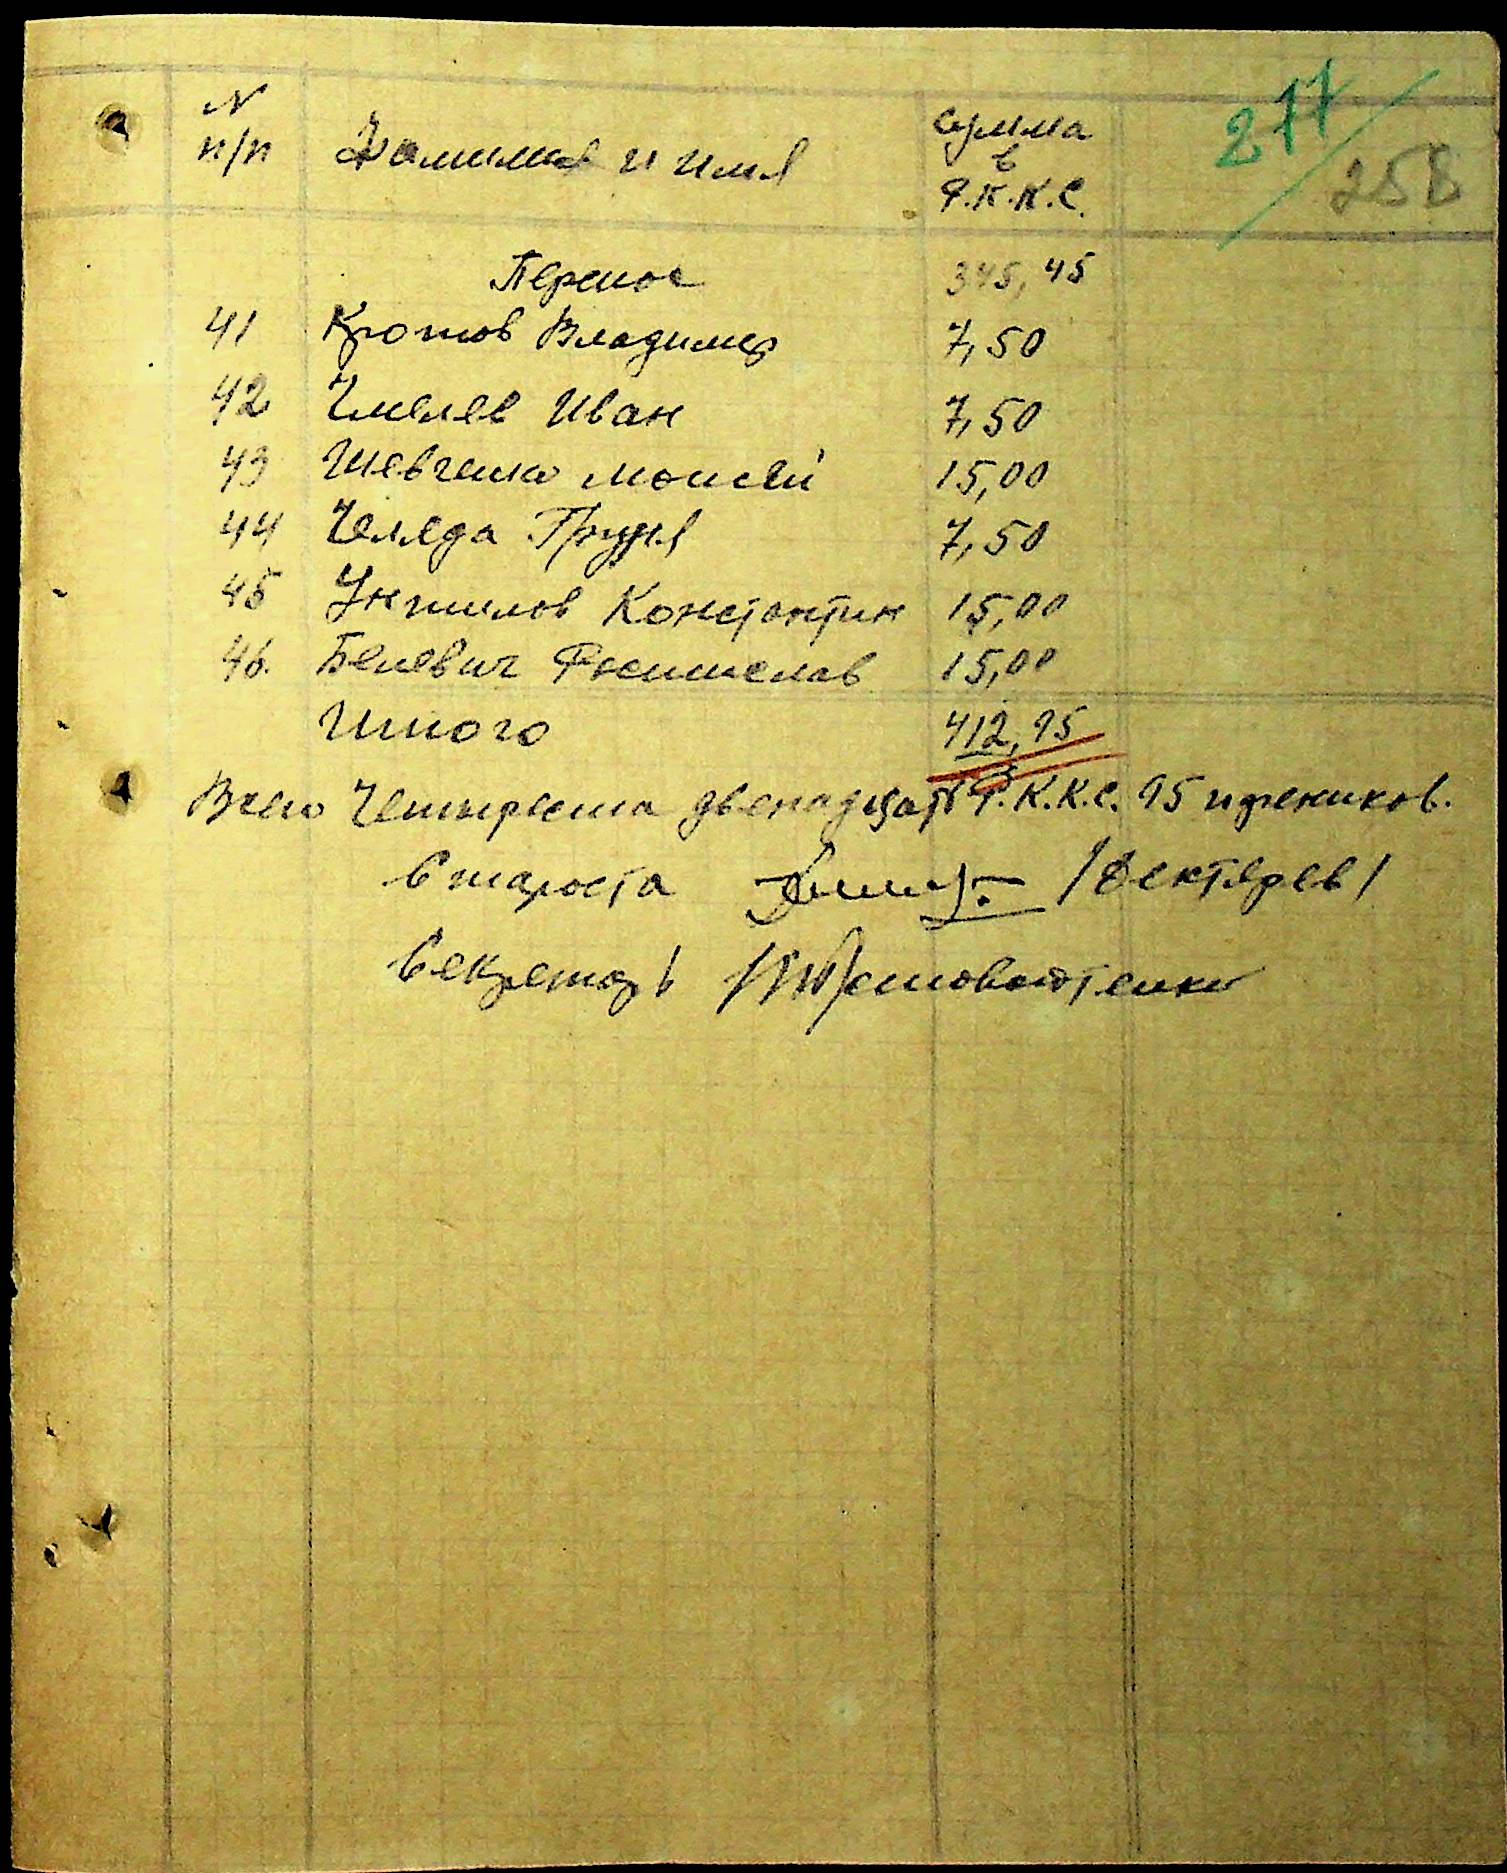 277
258
N п/п Фамилия и имя сумма в Ф.К.К.С.
Перенос 345,45
41 Кротов Владимир 7,50
42 Чмелев Иван 7,50
43 Шевченко Моисей 15,00
44 Челяда Груня 7,50
45 Константин 15,00
46. Белевич 15,00
Итого 412,95
Всего Четыреста двенадцать Ф.К.К.С. 95 пфеников.
Староста /Дектярев/
Секретарь